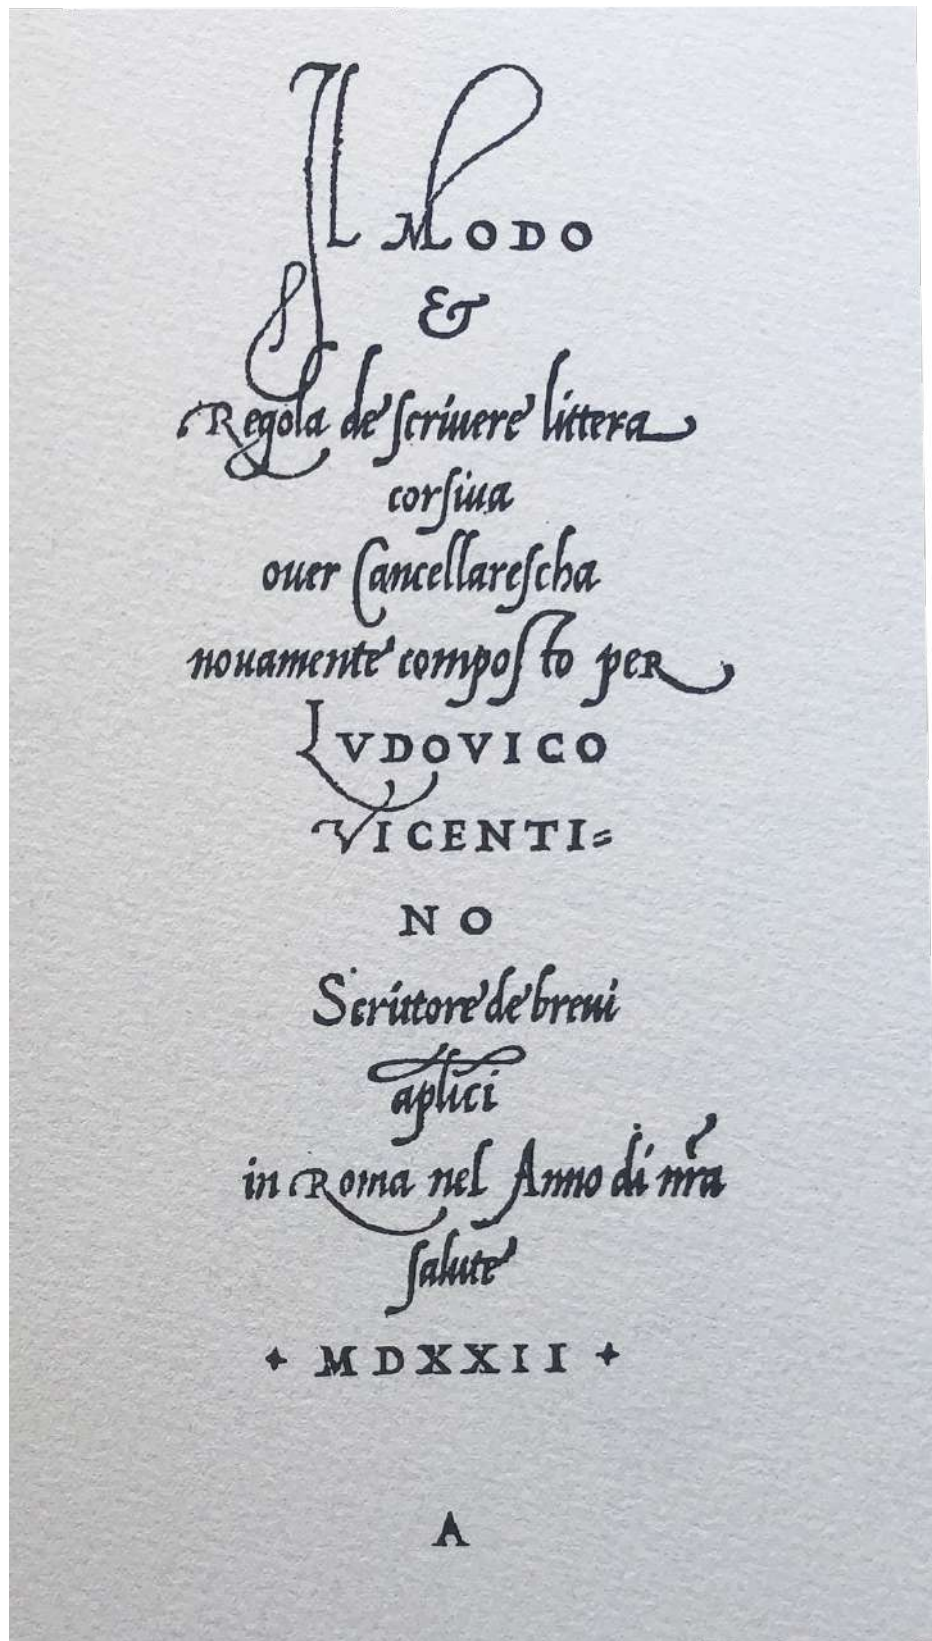 Il MODO
&
Regola de scriuere littera
corsiua
ouer Cancellarescha
nouamente composto per
LVDOVICO
VICENTI=
NO
Scrittore de breui
aplici
in Roma nel Anno di nr̃a
salute
✦ MDXXII ✦
A